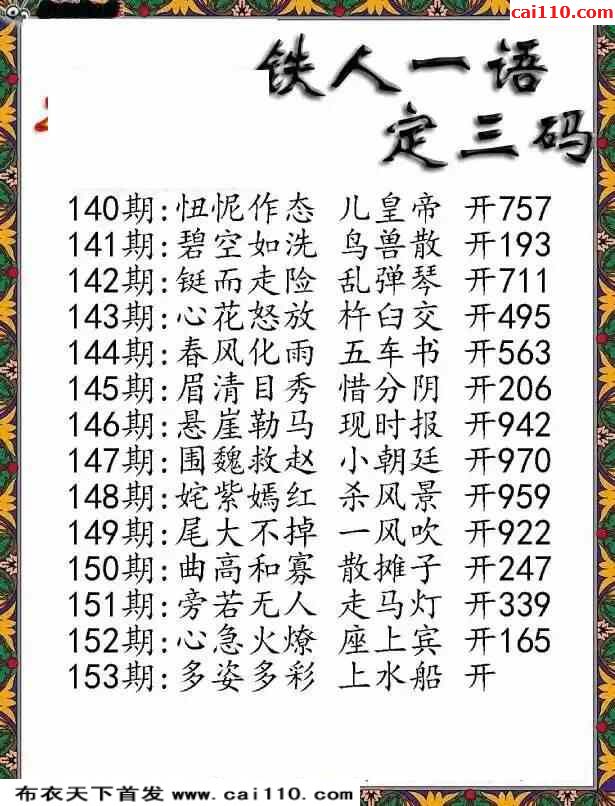 cai110.com
铁人一语
定三码
140期:忸怩作态 儿皇帝 开757
141期:碧空如洗 鸟兽散 开193
142期:铤而走险 乱弹琴 开711
143期:心花怒放 杵臼交 开495
144期:春风化雨 五车书 开563
145期:眉清目秀 惜分阴 开206
146期:悬崖勒马 现时报 开942
147期:围魏救赵 小朝廷 开970
148期:姹紫嫣红 杀风景 开959
149期:尾大不掉 一风吹 开922
150期:曲高和寡 散摊子 开247
151期:旁若无人 走马灯 开339
152期:心急火燎 座上宾 开165
153期:多姿多彩 上水船 开
布衣天下首发 www.cai110.com